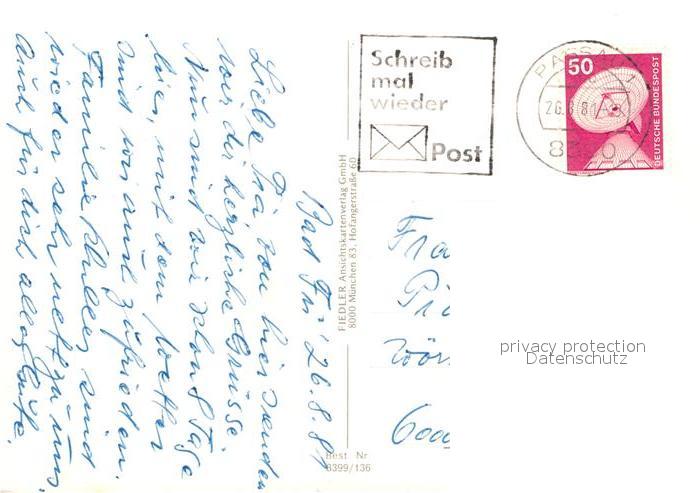 Bad Fü 26.8.81
Liebe von hier senden
wir dir herzliche Grüsse
Nun sind wir schon 8 Tage
hier, mit dem Wetter
sind wir auch zufrieden.
Familie Müller sind
wieder sehr nett zu uns.
Auch für dich alles Gute.
FIEDLER Ansichtskartenverlag GmbH
8000 München 83, Hofangerstraße 60
Best Nr
8399/136
Schreib
mal
wieder
Post
PASSA
26.8.81
50
DEUTSCHE BUNDESPOST
Fra
privacy protection
Datenschutz